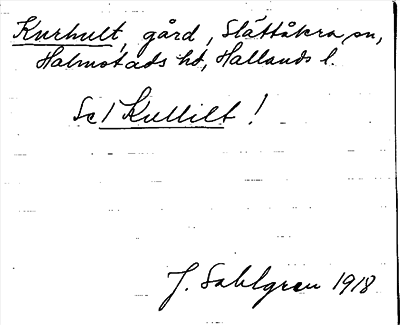 Kurhult, gård, Slättåkra sn,
Halmstads hd, Hallands l.
Se! Kullilt!
J. Sahlgren 1918